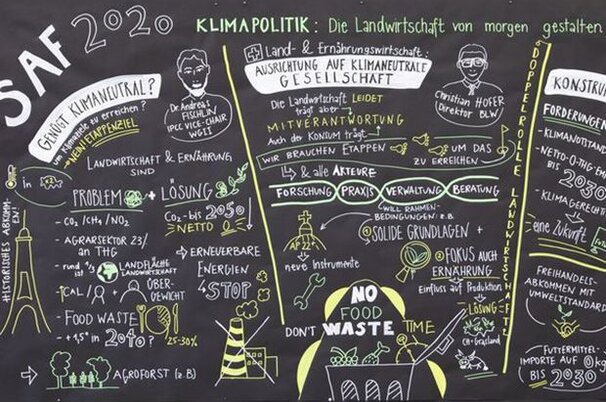 SAF 2020
KLIMAPOLITIK: Die Landwirtschaft von morgen gestalten
GENÜGT KLIMANEUTRAL?
um Klimaziele zu erreichen?
→ NEIN ETAPPENZIEL
Dr. Andreas
FISCHLIN
IPCC VICE-CHAIR
WGII
LANDWIRTSCHAFT & ERNÄHRUNG
SIND
PROBLEM + LÖSUNG
HISTORISCHES ABKOMMEN!
- CO₂/CH₄/NO₂
- AGRARSEKTOR 23%
an THG
- rund ⅓ LANDFLÄCHE
LANDWIRTSCHAFT
- ↑CAL/ ÜBER-
GEWICHT
- FOOD WASTE
25-30%
+1,5° in 2040?
→ AGROFORST (z.B)
CO₂-bis 2050
=NETTO
→ ERNEUERBARE
ENERGIEN
STOP
Land- & Ernährungswirtschaft:
AUSRICHTUNG AUF KLIMANEUTRALE
GESELLSCHAFT
Christian HOFER
Direktor BLW
Die Landwirtschaft LEIDET
trägt aber
MITVERANTWORTUNG
Auch der Konsum trägt
WIR BRAUCHEN ETAPPEN UM DAS
ZU ERREICHEN
↳ & alle AKTEURE
FORSCHUNG PRAXIS VERWALTUNG BERATUNG
WILL RAHMEN-
BEDINGUNGEN: z.B
AP 22+
neue Instrumente
SOLIDE GRUNDLAGEN +
FOKUS AUCH
ERNÄHRUNG
Einfluss auf Produktion
LÖSUNG
CH-Grasland
NO
FOOD
DON'T WASTE TIME
DOPPELROLLE LANDWIRTSCHAFT
KONSTRU
FORDERUNGEN
- KLIMANOTSTAND
- NETTO-0-THG-EM
BIS 2030
- KLIMAGERECHT
eine Zukunft
FREIHANDELS-
ABKOMMEN MIT
UMWELTSTANDARD
FUTTERMITTEL-
IMPORTE AUF 0 kg
BIS 2030